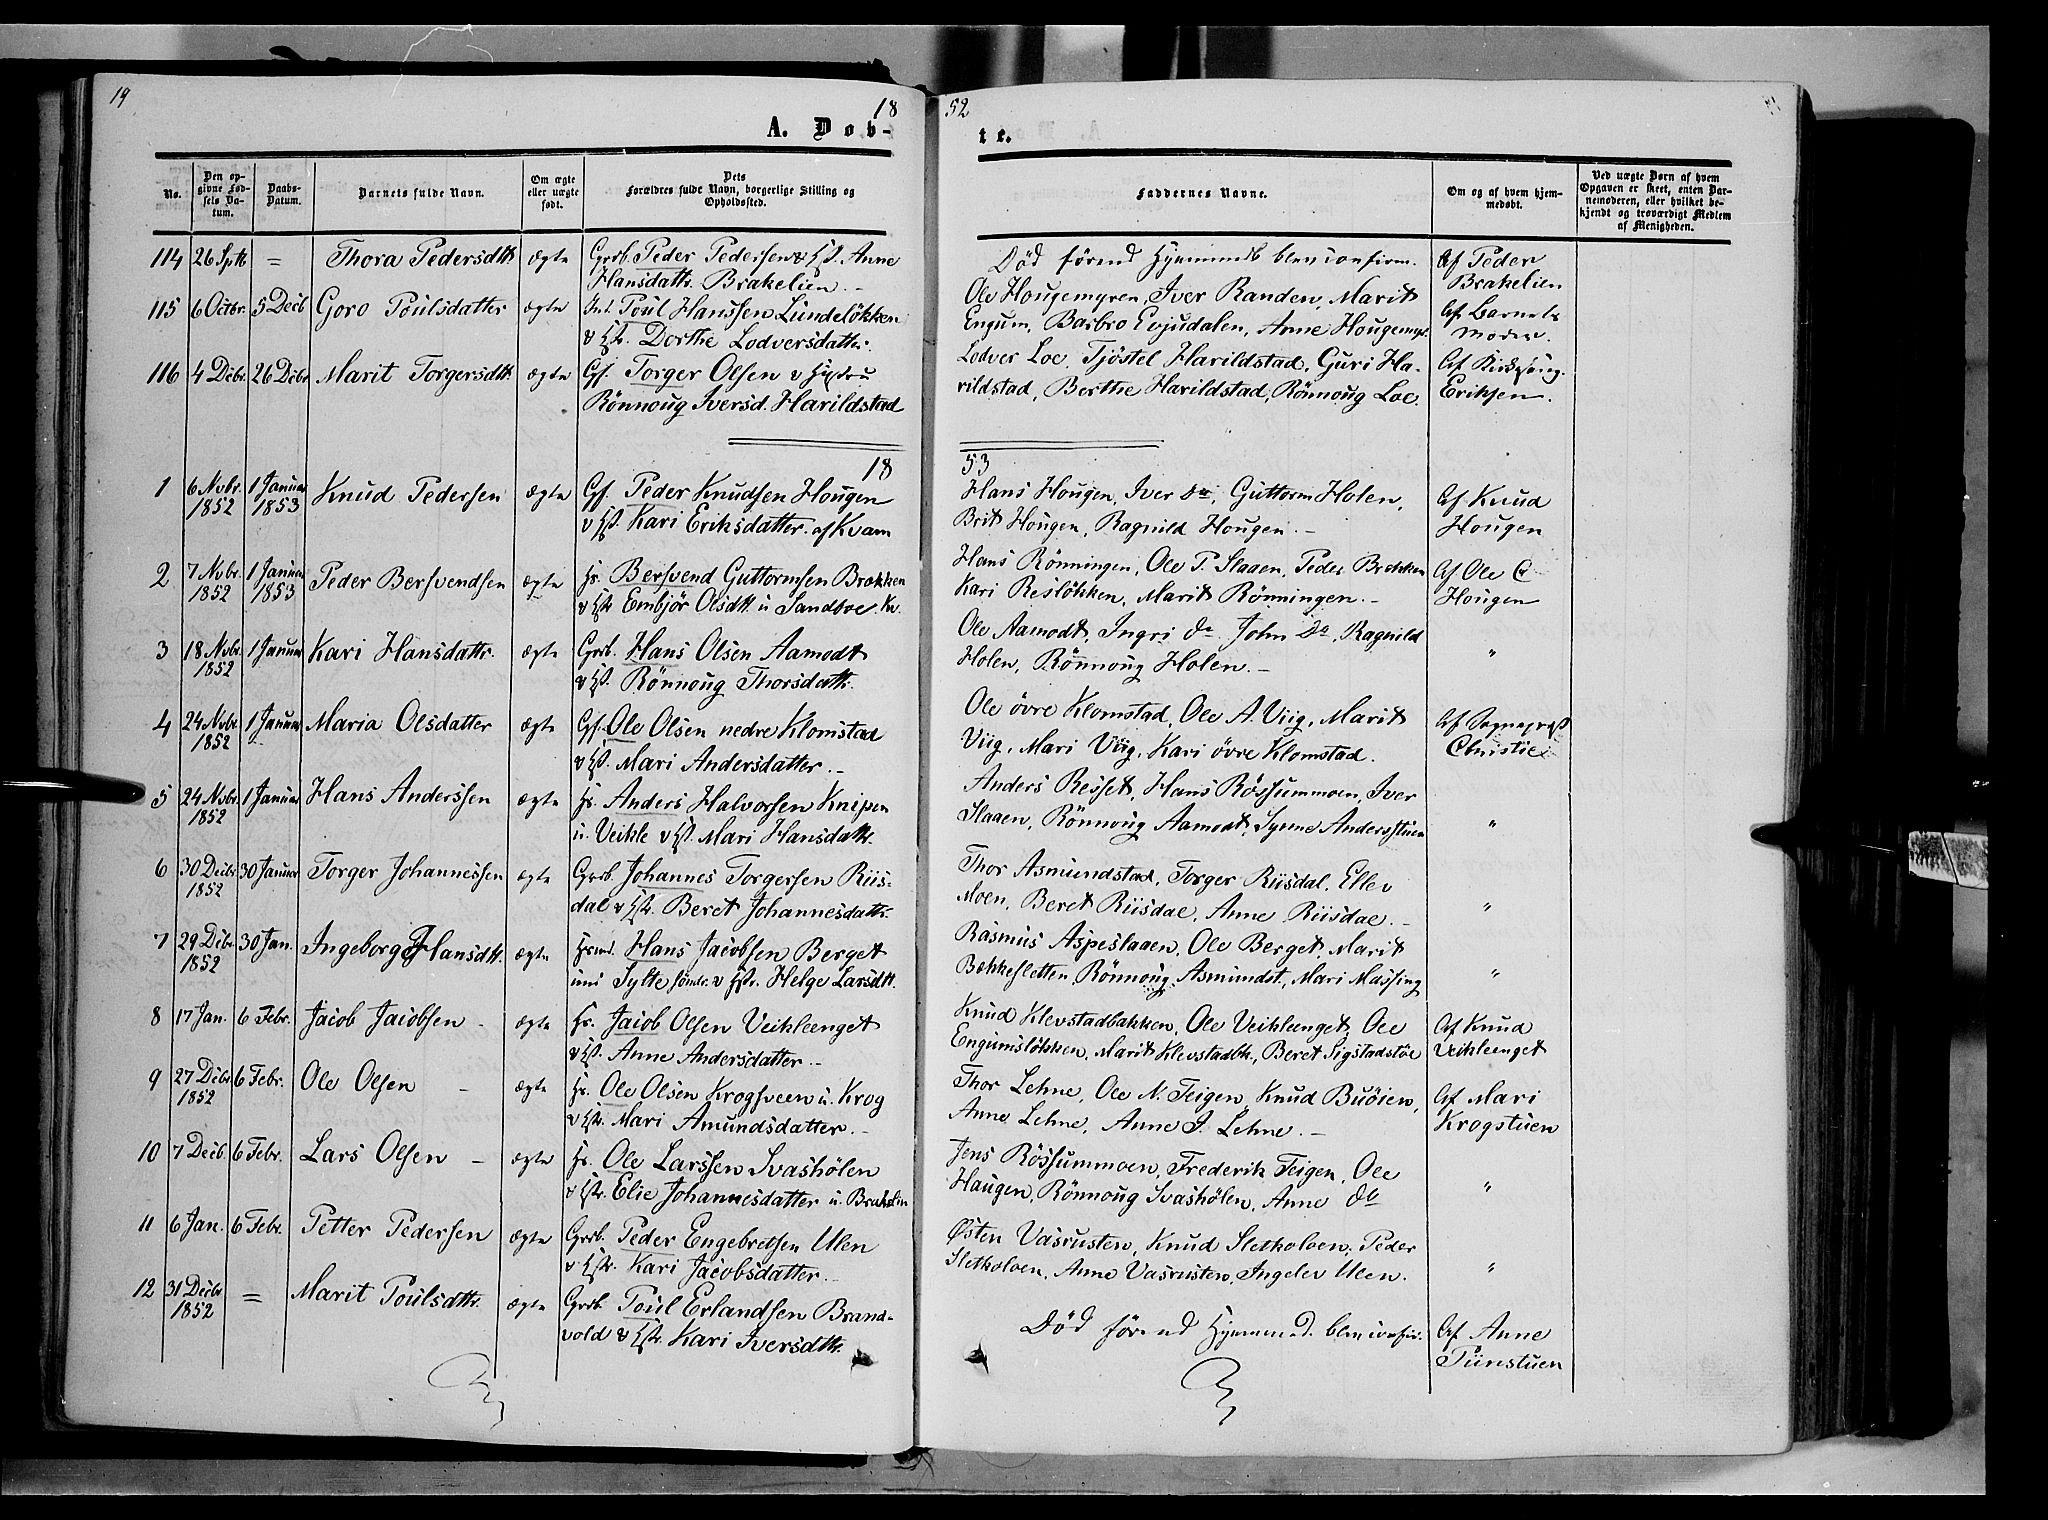 19
18
52
A. Døb-
te.
No.
Den op-
givne Fød-
sels Da-
tum.
Daabs-
Datum.
Barnets fulde Navn.
Om ægte
eller uægte
født.
Dets
Forældres fulde Navn, borgerlige Stilling og
Opholdssted.
Faddernes Navne.
Om og af hvem hjem-
medøbt.
Ved uægte Børn af hvem
Opgaven er skeet, enten Bar-
nemoderen, eller hvilket be-
kjendt og troværdigt Medlem
af Menigheden.
114 26 Sptb = Thora Pedersdtr ægte Grb. Peder Pedersen & Hst. Anne
Hansdatr. Brakelien.
Død førend Hjemmedb blev confirm.
Af Peder
Brakelien
115 6 Octbr. 5 Decb Goro Poulsdatter ægte Int. Poul Hanssen Lundeløkken
& Hst. Dorthe Lodversdattr.
Ole Hougemyren, Iver Randen, Marit
Engum, Barbro Evjudalen, Anne Hougemyr.
Af Barnets
Moder.
116 4 Debr. 26 Debr Marit Torgersdtr ægte Gf. Torger Olsen & Hustru
Rönnoug Iversd. Harildstad
Lodver Loe, Tjöstel Harildstad, Guri Ha-
rildstad, Berthe Harildstad, Rönnoug Loe.
Af Kirkesang.
Eriksen.
18
53
1 6 Nvbr. 1852 1 Januar 1853 Knud Pedersen ægte Gf. Peder Knudsen Hougen
& Hst. Kari Eriksdatter af Kvam
Hans Hougen, Iver do, Guttorm Holen,
Brit Hougen, Ragnild Hougen. -
Af Knud
Hougen
2 7 Nvbr. 1852 1 Januar 1853 Peder Bersvendsen ægte Hs. Bersvend Guttormsen Brækken
& Hst. Embjör Olsdtr u Sandboe Kv.
Hans Rönningen, Ole P. Slaaen, Peder Brækken
Kari Resløkken, Marit Rönningen. -
Af Ole
Hougen
3 18 Nvbr. 1852 1 Januar Kari Hansdattr. ægte Grb. Hans Olsen Aamodt
& Hst. Rönnoug Thorsdattr.
Ole Aamodt, Ingri do John do, Ragnild
Holen, Rönnoug Holen. -
"
4 24 Nvbr. 1852 1 Januar Maria Olsdatter ægte Gf. Ole Olsen nedre Klomstad
& Hst. Mari Andersdatter. -
Ole övre Klomstad, Ole A. Viig, Marit
Viig, Mari Viig, Kari övre Klomstad.
Af Sogneprest
Christie
5 24 Nvbr. 1852 1 Januar Hans Anderssen ægte Hs. Anders Halvorsen Knipen
u. Veikle & Hst. Mari Hansdattr.
Anders Resset, Hans Røssummoen, Iver
Slaaen, Rönnoug Aamodt, Synne Andersstuen
"
6 30 Decbr 1852 30 Januar Torger Johannessen ægte Grb. Johannes Torgersen Riis-
dal & Hst. Beret Johannesdattr.
Thor Asmundstad, Torger Riisdal, Ellev
Moen, Beret Riisdal, Anne Riisdal. -
"
7 29 Debr 1852 30 Jan. Ingeborg Hansdtr. ægte Hans Jacobsen Berget
Sylte & Hst. Helge Larsdtr.
Rasmus Aspeslaaen, Ole Berget, Marit
Bækkesletten Rönnoug Asmundst., Mari Massing
"
8 17 Jan. 6 Febr. Jacob Jacobsen - ægte Hs. Jacob Olsen Veikleenget
& Hst. Anne Andersdatter. -
Knud Klevstadbakken, Ole Veikleenget, Ole
Engumsløkken, Marit Klevstadbk., Beret Sigstadstöe
Af Knud
Veikleenget
9 27 Debr 1852 6 Febr. Ole Olsen - ægte Hs. Ole Olsen Krogsveen u. Krog
& Hst. Mari Amundsdatter. -
Thor Lehne, Ole N. Teigen, Knud Buöien,
Anne Lehne, Anne J. Lehne. -
Af Mari
Krogstuen
10 7 Decb. 6 Febr. Lars Olsen - ægte Hs. Ole Larssen Svashölen
& Hst. Elie Johannesdatter u. Brakelien
Jens Røssummoen, Frederik Teigen, Ole
Haugen, Rönnoug Svashölen, Anne do
"
11 6 Jan. 6 Febr. Petter Pedersen ægte Grb. Peder Engebretsen Ulen
& Hst. Kari Jacobsdatter. -
Østen Vasrusten, Knud Sletholen, Peder
Sletholen, Anne Vasrusten, Ingelev Ulen.
"
12 31 Decbr 1852 = Marit Poulsdtr. ægte Grb. Poul Erlandsen Brand-
vold & Hst. Kari Iversdtr.
Død førend Hjemmed. blev confir.
Af Anne
Tiinstuen